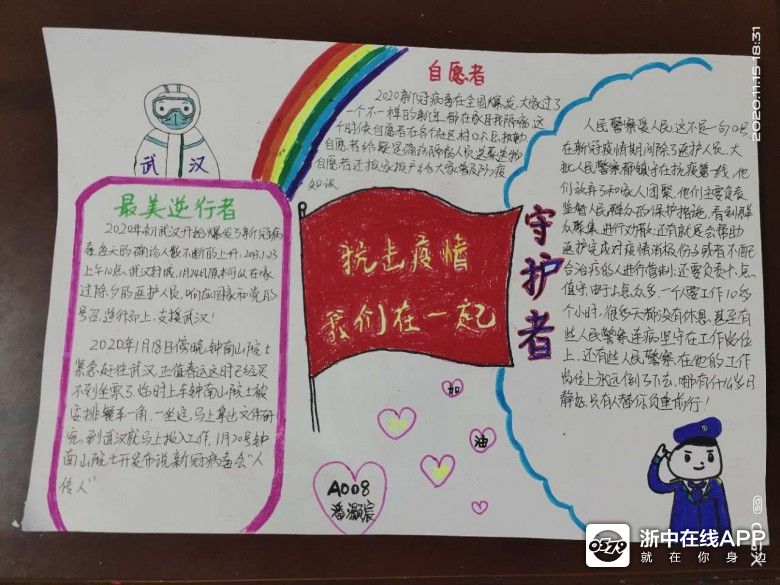 自愿者
2020新冠病毒在全国爆发,大家过了
一个不一样的新年,都在家自我隔离,这
个时候自愿者在各个社区村口人员
自愿者给
自愿者还挨家挨户的给大家普及防疫
知识
武 汉
最美逆行者
2020年初武汉开始爆发了新冠病
毒每天的确诊人数不断的上升,2020.1.23
上午10点,武汉封城,1月24日原本可以在家
过除夕的医护人员,响应国家和党的
号召,逆行而上,支援武汉!
2020年1月18日傍晚,钟南山院士
紧急赶往武汉,正值春运这时已经买
不到坐票了,临时上车钟南山院士被
安排餐车一角,一坐定,马上拿出文件研
究,到武汉就马上投入工作,1月20号钟
南山院士开发布说新冠病毒会“人
传人”
抗击疫情
我们在一起
守护者
人民警察爱人民,这不是一句口号
在新冠疫情期间除了医护人员,大
批人民警察都镇守在抗疫第一线,他
们放弃了和家人团聚,他们主要负责
监督人民群众的保护措施,看到群
众聚集进行劝散;还有就是会帮助
医护完成对疫情消极份子或者不配
合治疗的人进行管制;还要负责卡点
值守,由于卡点众多,一个人要工作10多
个小时,很多天都没有休息,甚至有
些人民警察连病坚守在工作岗位
上,还有些人民警察,在他的工作
岗位上永远倒了下去,哪有什么岁月
静好,只有人替你负重前行!
加
油
加
油
A008
潘灏宸
2020.11.15 18:31
浙中在线APP
就在你身边